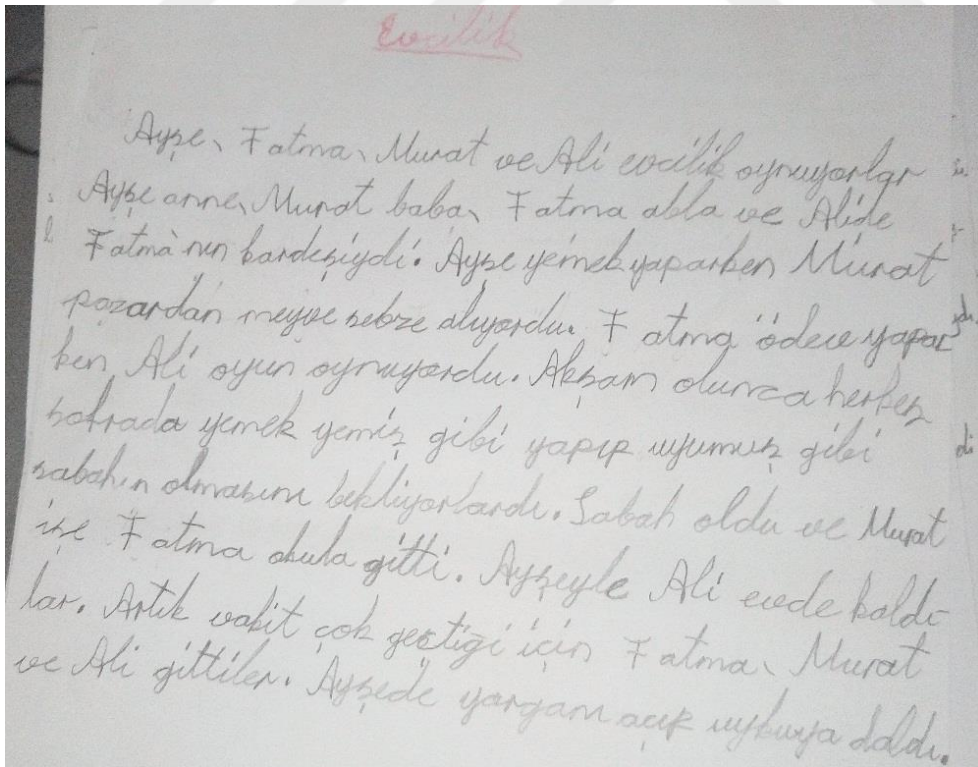 Evcilik
Ayşe, Fatma, Murat ve Ali evcilik oynuyorlar
Ayşe anne, Murat baba, Fatma abla ve Alide
Fatma'nın kardeşiydi. Ayşe yemek yaparken Murat
pazardan meyve sebze alıyordu. Fatma ödev yapar
ken Ali oyun oynuyordu. Akşam olunca herkes
sofrada yemek yemiş gibi yapıp uyumuş gibi
sabahın olmasını bekliyorlardı. Sabah oldu ve Murat
işe Fatma okula gitti. Ayşeyle Ali evde kaldı-
lar. Artık vakit çok geçtiği için Fatma, Murat
ve Ali gittiler. Ayşede yorganı açıp uykuya daldı.